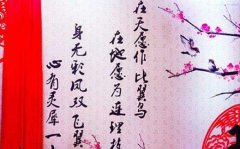 在天愿作比翼鸟
在地愿为连理枝
身无彩凤双飞翼
心有灵犀一